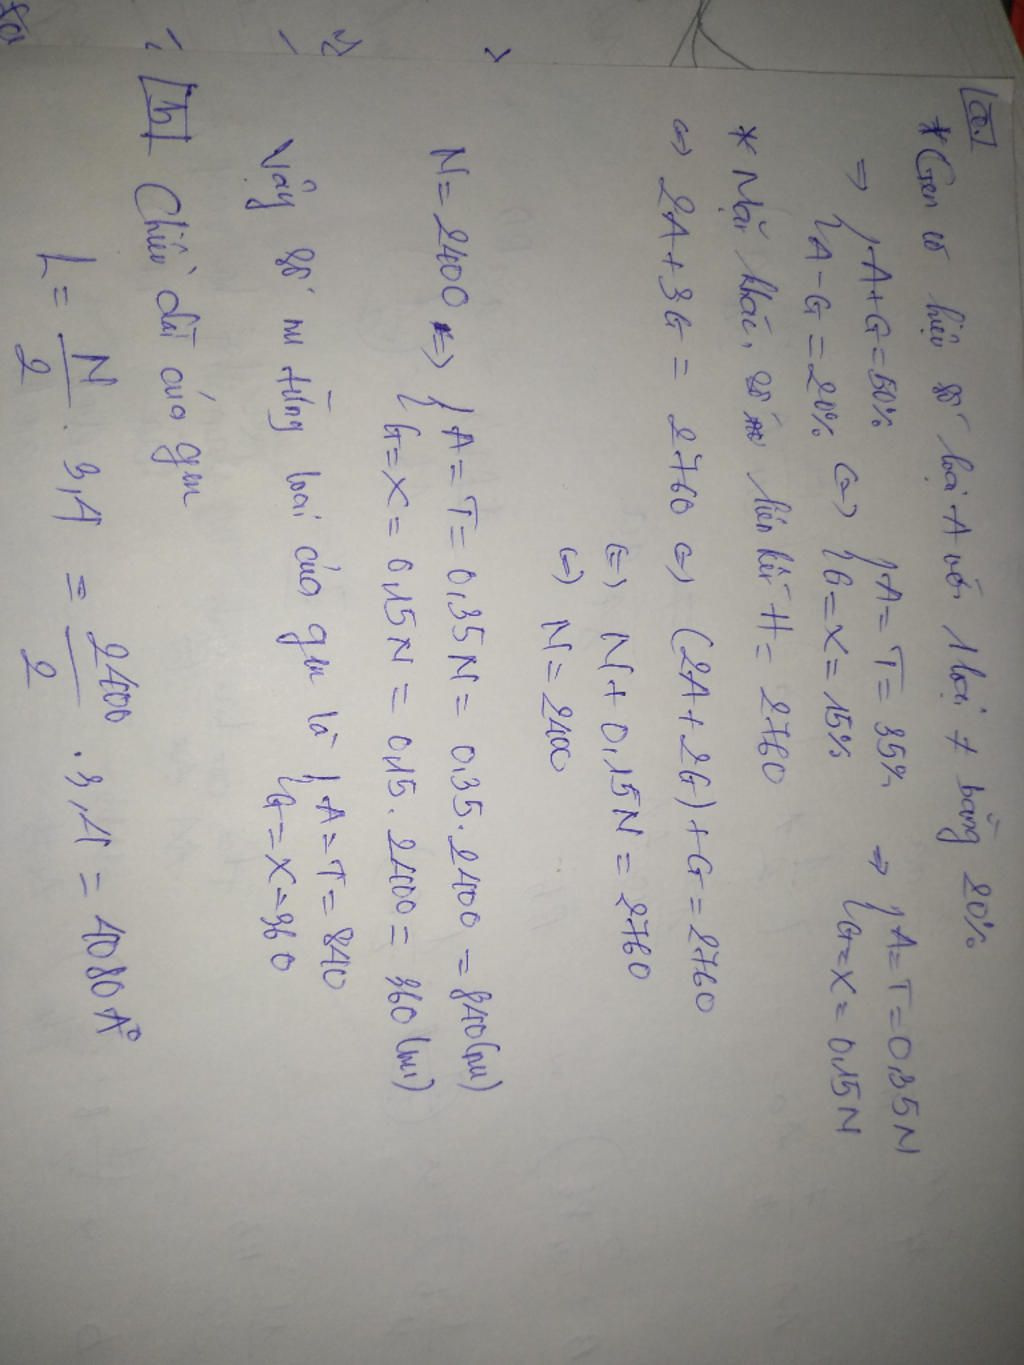 a
* Gen có hiệu số loại A với 1 loại ≠ bằng 20%
=> { A+G=50% A-G=20% <=> { A=T=35% G=X=15% => { A=T=0,35N G=X=0,15N
* Mặt khác, số liên kết H = 2760
<=> 2A+3G = 2760 <=> (2A+2G)+G=2760
<=> N+0,15N=2760
<=> N=2400
N=2400 <=> { A=T=0,35N=0,35.2400=840(nu)
G=X=0,15N=0,15.2400=360(nu)
Vậy số nu từng loại của gen là { A=T=840 G=X=360
b Chiều dài của gen
L = N/2 . 3,4 = 2400/2 . 3,4 = 4080 A°